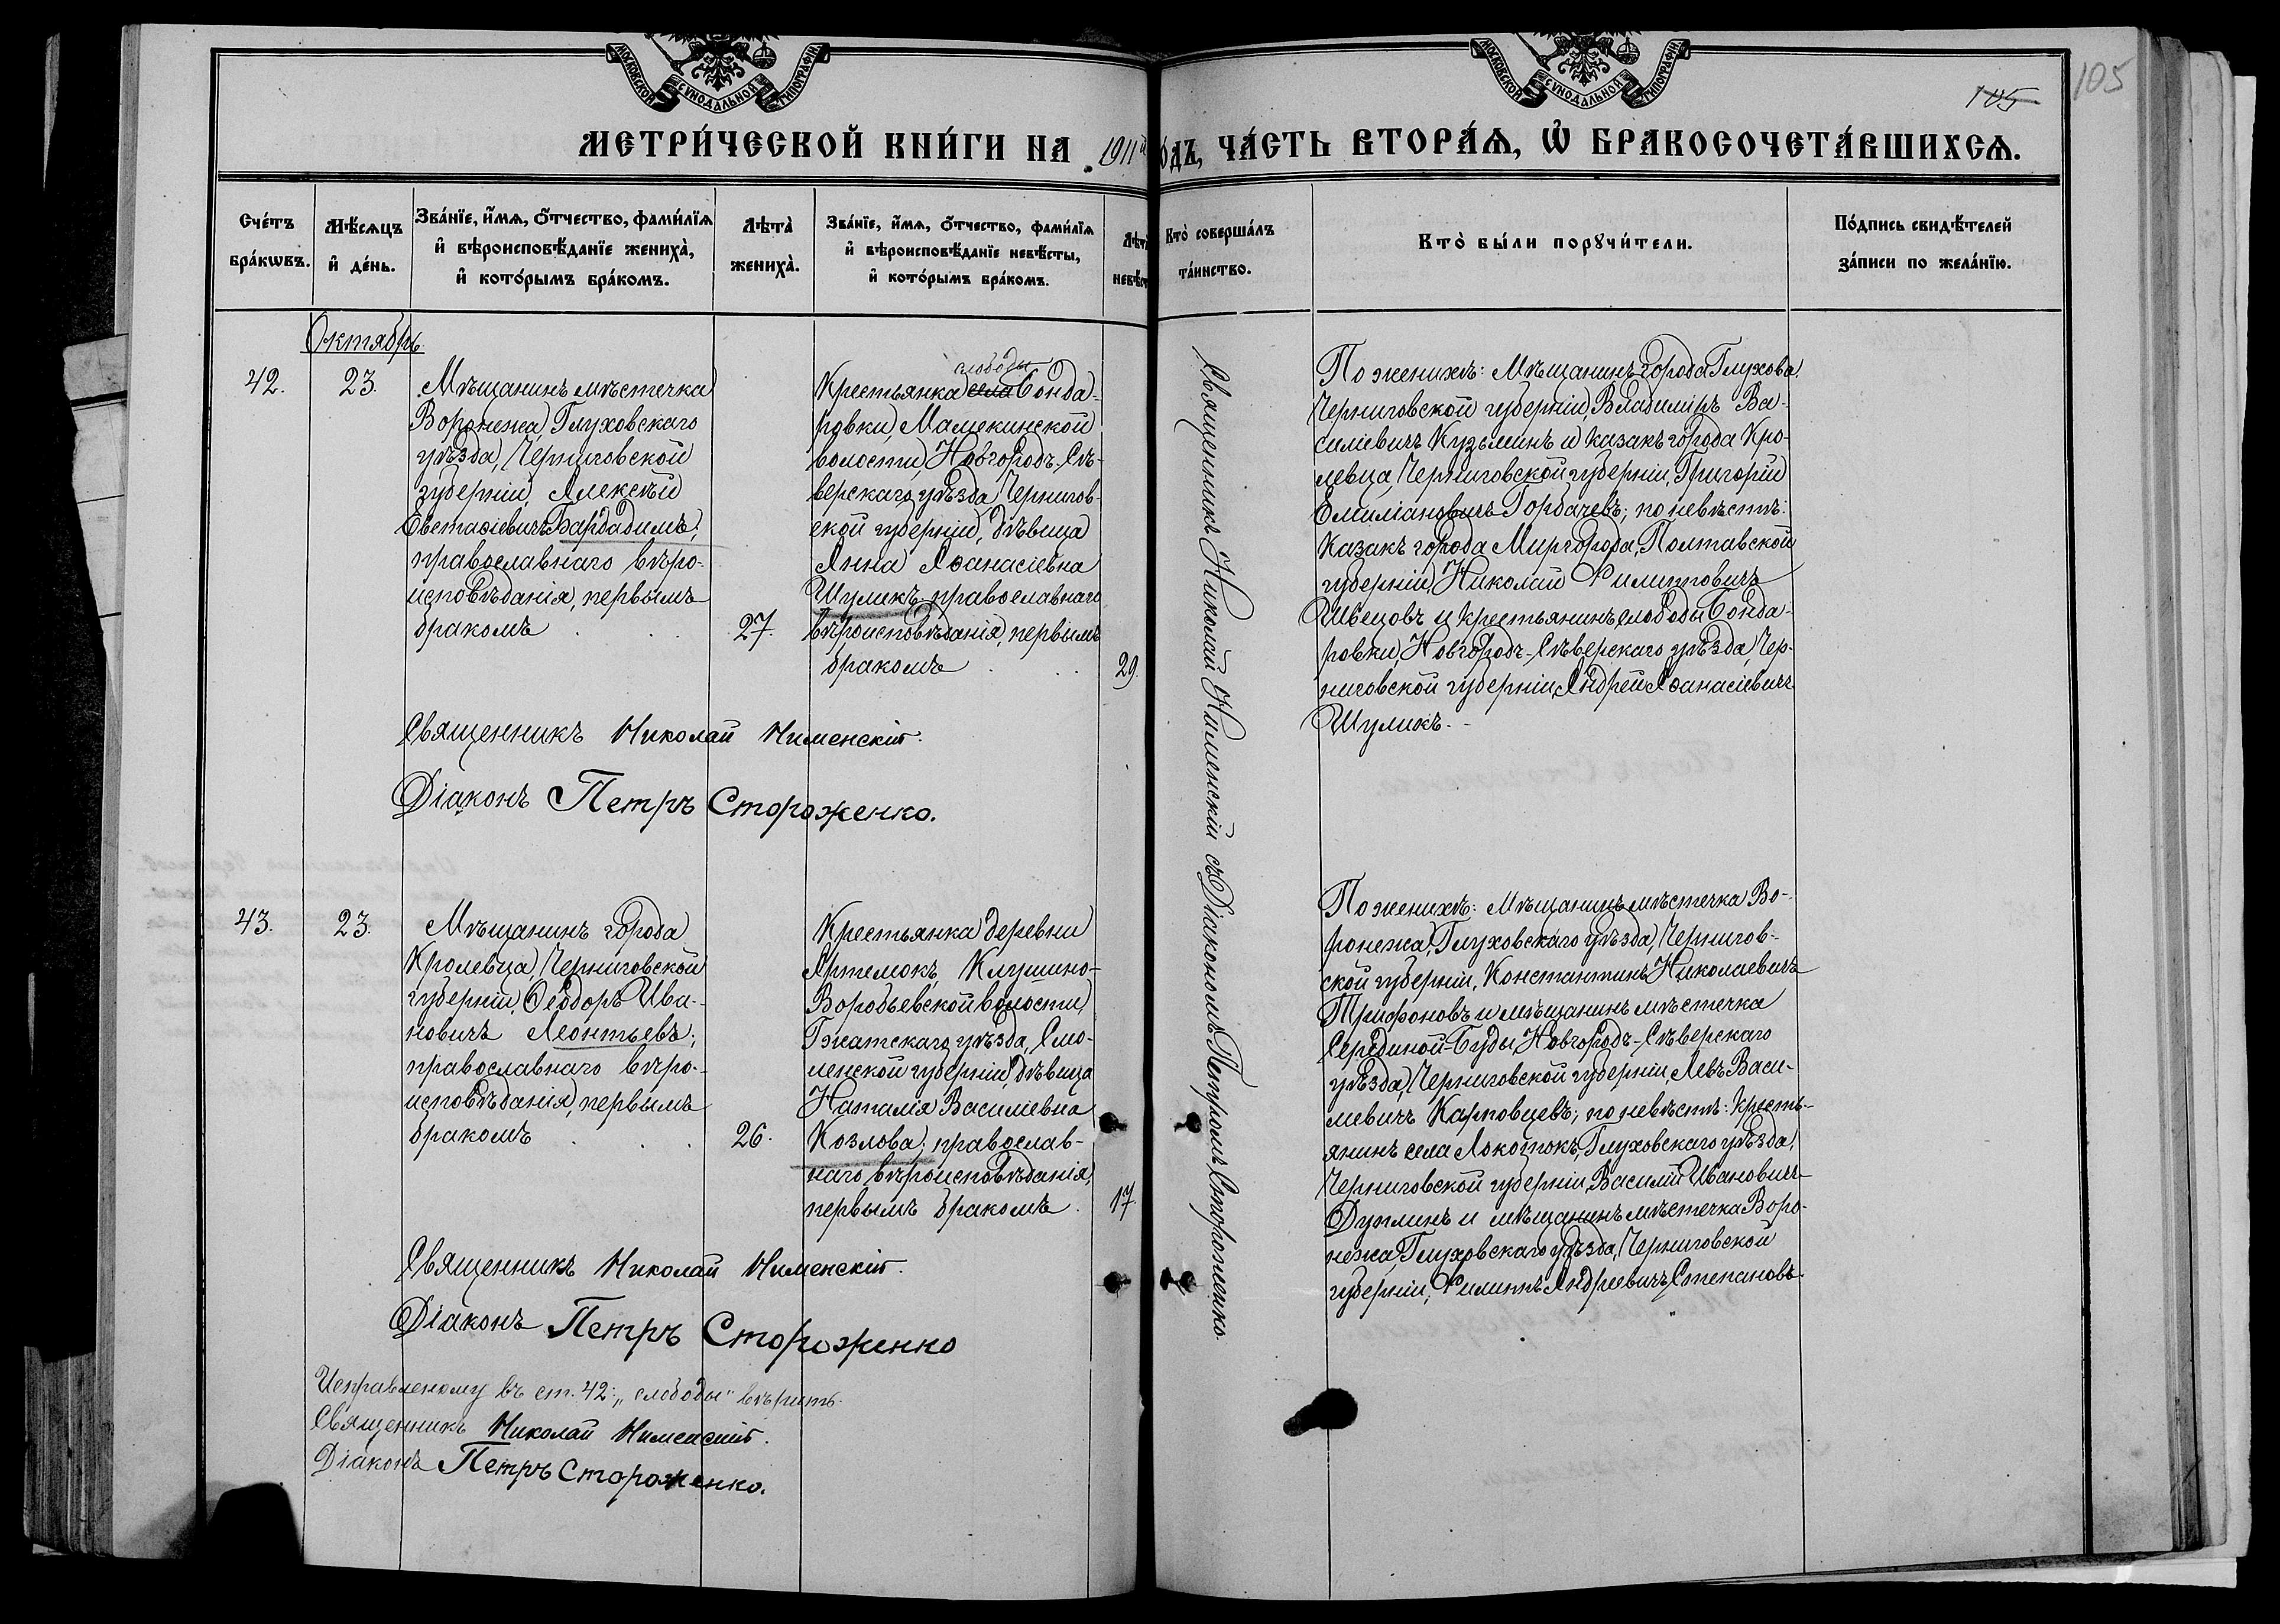 МОСКОВСКОЙ СѴНОДАЛЬНОЙ ТИПОГРАФІИ
МОСКОВСКОЙ СѴНОДАЛЬНОЙ ТИПОГРАФІИ
105
105
МЕТРИ́ЧЕСКОЙ КНИ́ГИ НА 1911й
О́ДЪ, ЧА́СТЬ ВТОРА́Ѧ, Ѿ БРАКОСОЧЕТА́ВШИХСѦ.
Сче́тъ
бра́кѡвъ.
Мѣ́сѧцъ
и҆ де́нь.
Зва́нїе, и҆́мѧ, ѻ҆́тчество, фами́лїѧ
и҆ вѣроисповѣ́данїе жениха̀,
и҆ кото́рымъ бра́комъ.
Лѣта̀
жениха̀.
Зва́нїе, и҆́мѧ, ѻ҆́тчество, фами́лїѧ
и҆ вѣроисповѣ́данїе невѣ́сты,
и҆ кото́рымъ бра́комъ.
Лѣт
невѣ́ст
Кто̀ соверша́лъ
та́инство.
Кто̀ бы́ли порꙋчи́тели.
По́дпись свидѣ́телей
за́писи по жела́нїю.
Октябрь
42.
23.
Мѣщанинъ мѣстечка
Воронежа, Глуховскаго
уѣзда, Черниговской
губерніи, Алексѣй
Евстаѳіевичъ Бардадимъ,
православнаго вѣро-
исповѣданія, первымъ
бракомъ
27.
слободы
Крестьянка села Бонда-
ровки, Мамекинской
волости, Новгородъ-Сѣ-
верскаго уѣзда, Чернигов-
ской губерніи, дѣвица
Анна Аѳанасіевна
Шуликъ, православнаго
вѣроисповѣданія, первымъ
бракомъ
29.
Священникъ Николай Хименскій съ Діакономъ Петромъ Стороженко.
По женихѣ: Мѣщанинъ города Глухова,
Черниговской губерніи, Владиміръ Ва-
силіевичъ Кузьминъ и казакъ города Кро-
левца, Черниговской губерніи, Григорій
Емиліановичъ Горбачевъ; по невѣстѣ:
Казакъ города Миргорода, Полтавской
губерніи, Николай Филипповичъ
Швецовъ и крестьянинъ слободы Бонда-
ровки, Новгородъ-Сѣверскаго уѣзда, Чер-
ниговской губерніи, Андрей Аѳанасіевичъ
Шуликъ.
Священникъ Николай Хименскій.
Діаконъ Петръ Стороженко.
43.
23.
Мѣщанинъ города
Кролевца, Черниговской
губерніи, Ѳеодоръ Ива-
новичъ Леонтьевъ,
православнаго вѣро-
исповѣданія, первымъ
бракомъ
26.
Крестьянка деревни
Артемокъ, Клушино-
Воробьевской волости,
Гжатскаго уѣзда, Смо-
ленской губерніи, дѣвица
Наталія Василіевна
Козлова, православ-
наго вѣроисповѣданія,
первымъ бракомъ
17.
По женихѣ: Мѣщанинъ мѣстечка Во-
ронежа, Глуховскаго уѣзда, Чернигов-
ской губерніи, Константинъ Николаевичъ
Трифоновъ и мѣщанинъ мѣстечка
Серединой-Буды, Новгородъ-Сѣверскаго
уѣзда, Черниговской губерніи, Левъ Васи-
лиевичъ Карповцевъ; по невѣстѣ: Кресть-
янинъ села Локотокъ, Глуховскаго уѣзда,
Черниговской губерніи, Василій Ивановичъ
Дуплинъ и мѣщанинъ мѣстечка Воро-
нежа, Глуховскаго уѣзда, Черниговской
губерніи, Филиппъ Андреевичъ Степановъ.
Священникъ Николай Хименскій.
Діаконъ Петръ Стороженко
Исправленому въ ст. 42: „слободы" вѣрить.
Священникъ Николай Хименскій.
Діаконъ Петръ Стороженко.